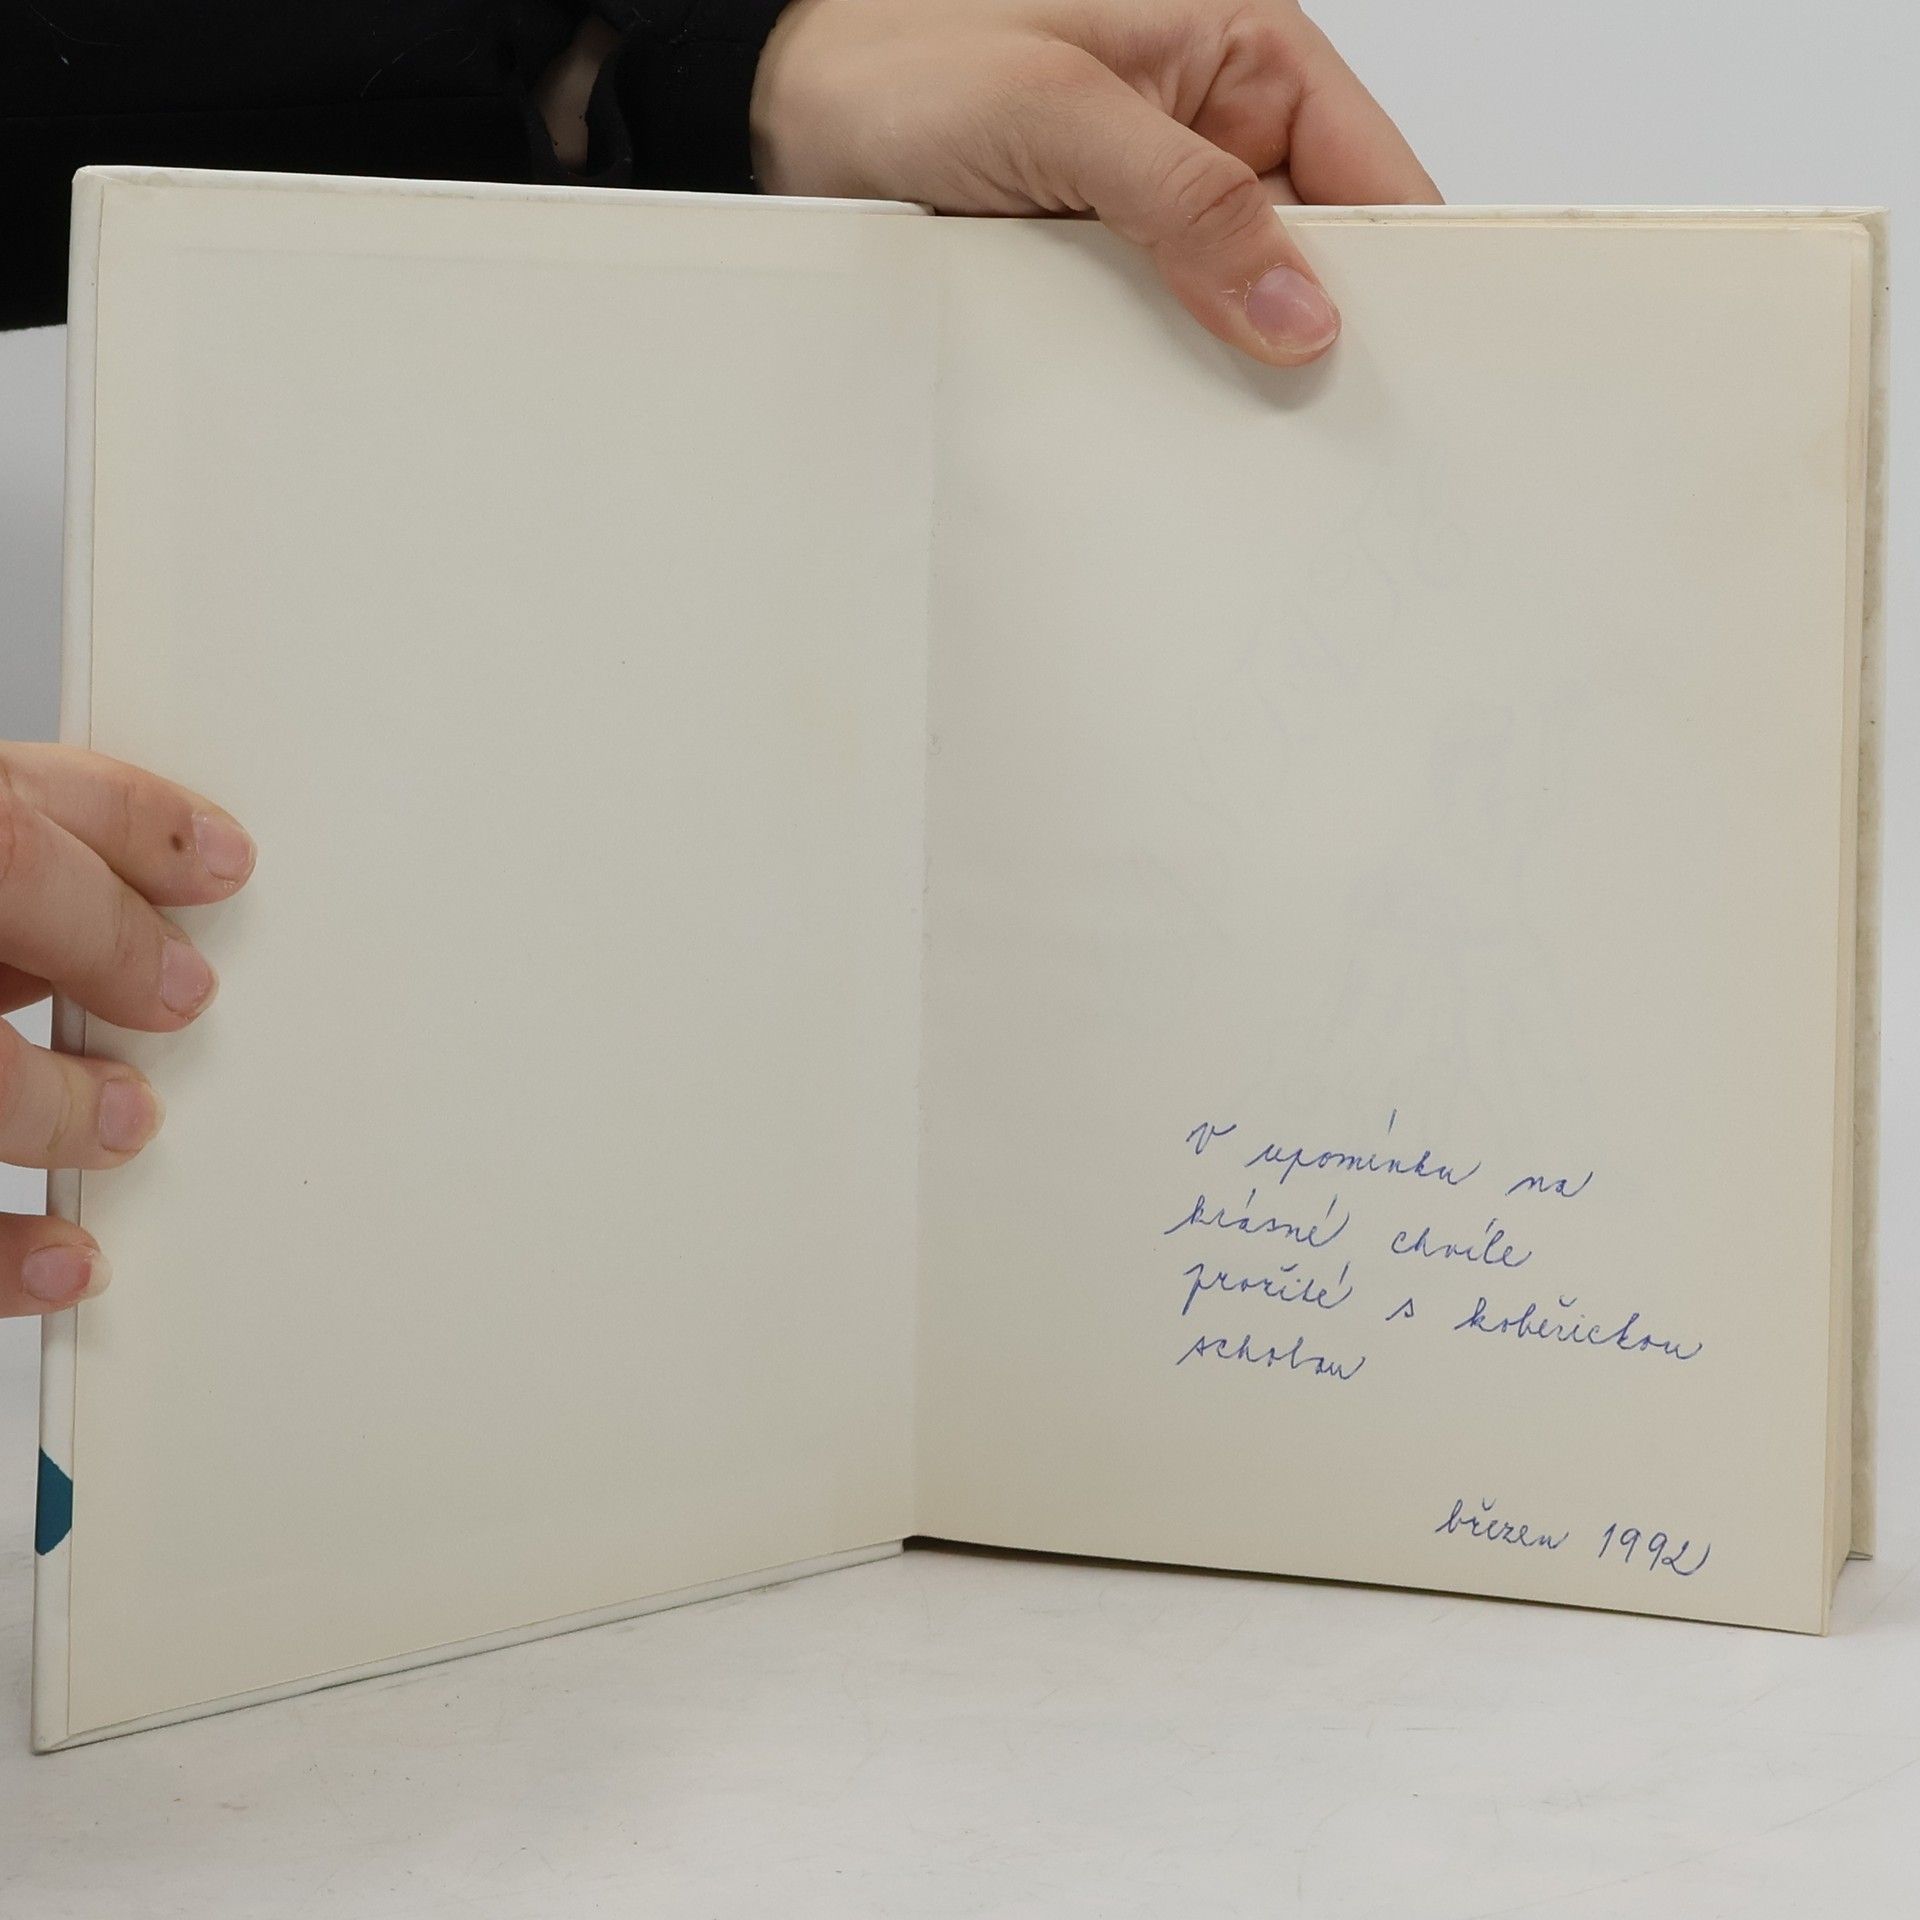 v upomínku na
krásné chvíle
prožité s kobeřickou
scholou
březen 1992